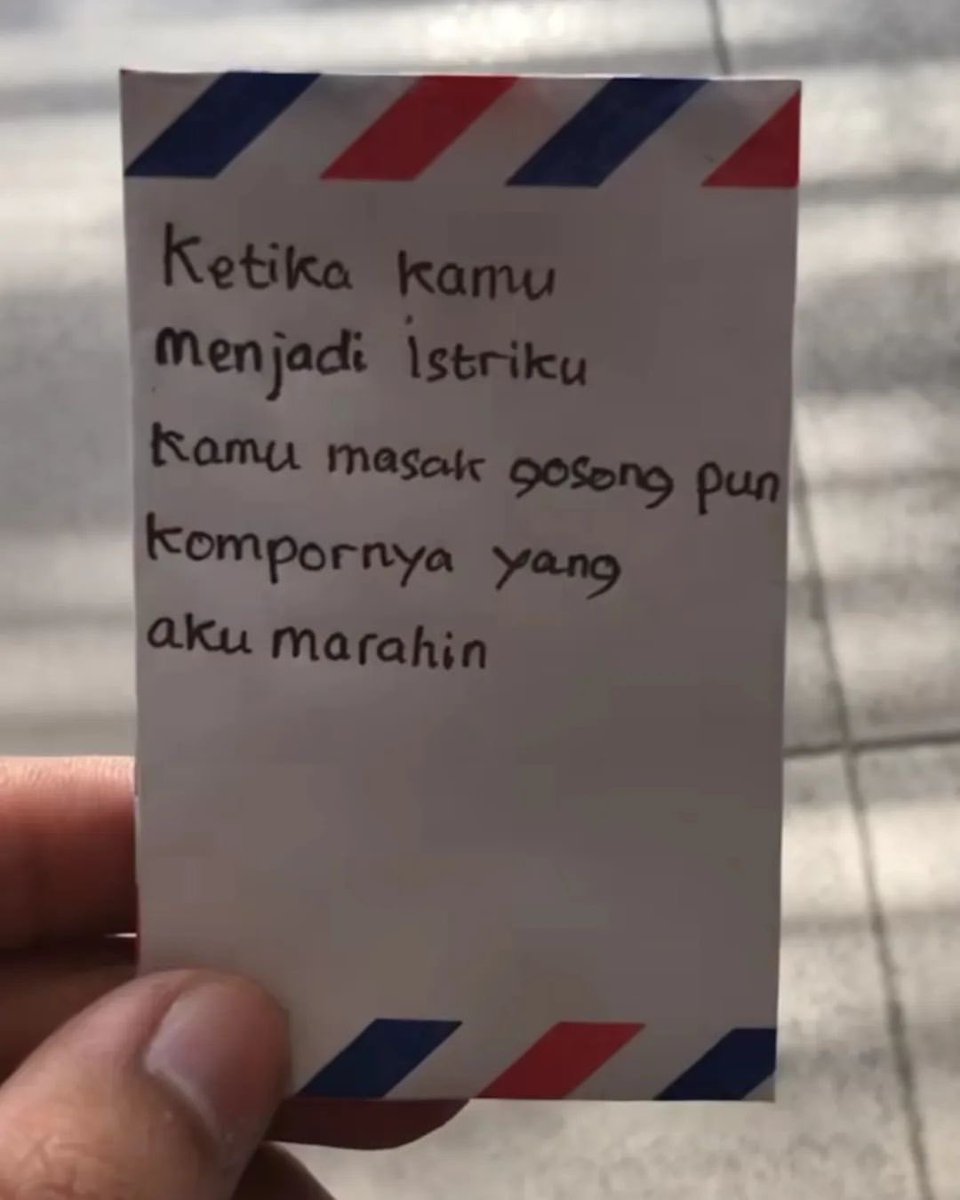 Ketika kamu
menjadi istriku
kamu masak gosong pun
kompornya yang
aku marahin